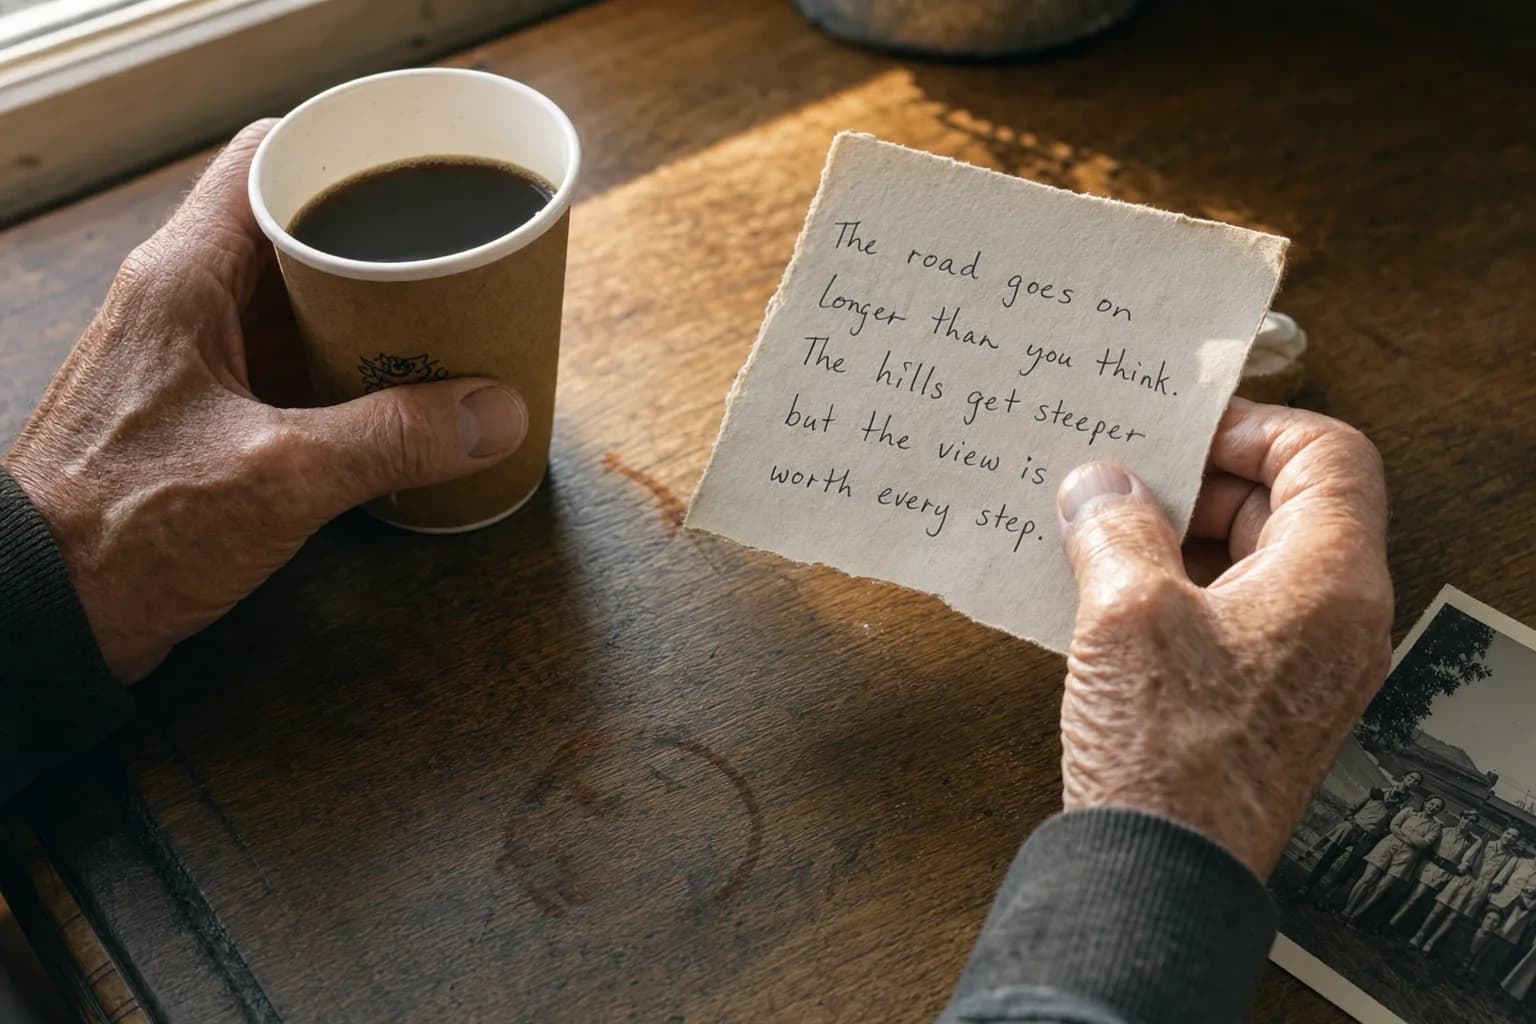 The road goes on
longer than you think.
The hills get steeper
but the view is
worth every step.